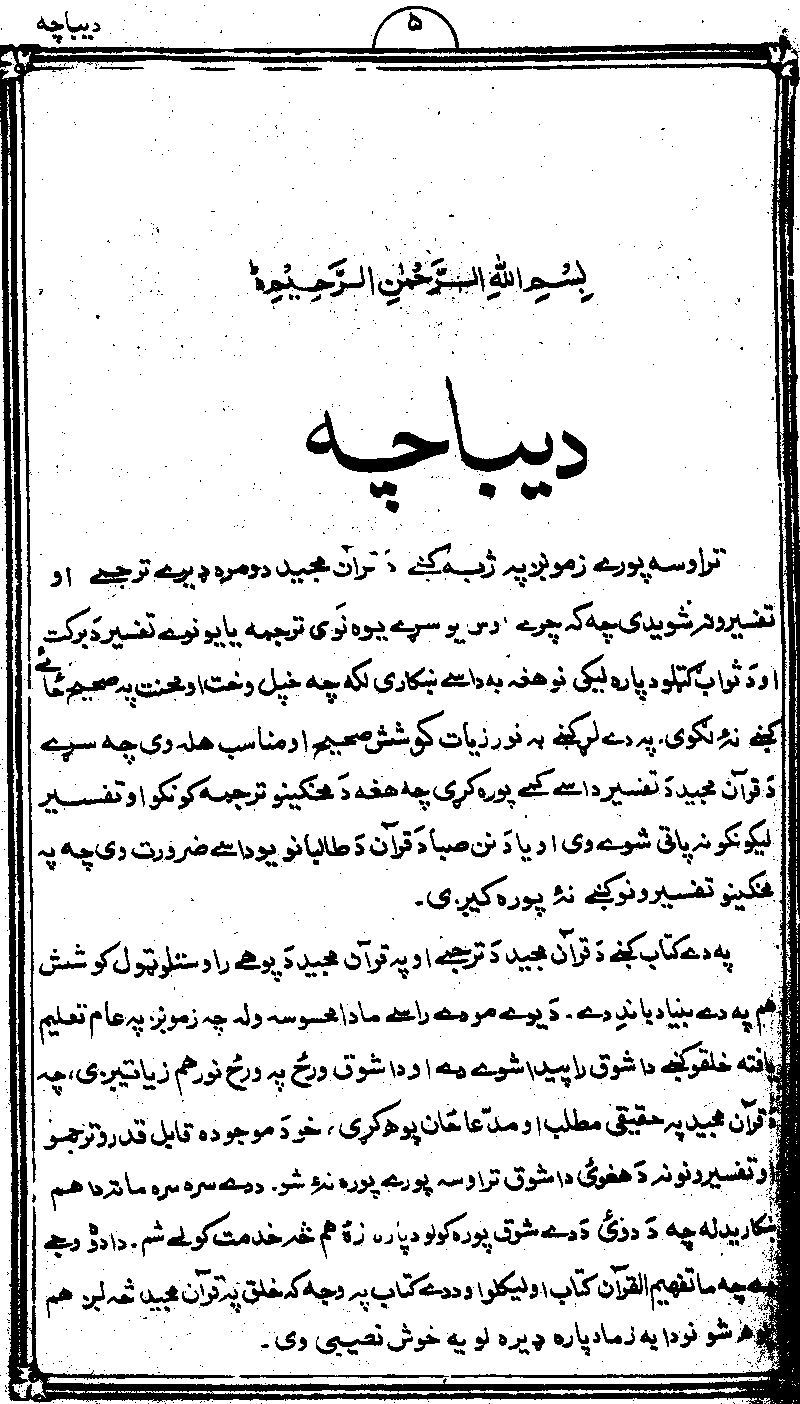 ۵
دیباچه
بِسْمِ اللهِ الرَّحْمٰنِ الرَّحِيْمِ
دیباچه
تراوسه پورے زمونږ په ژبه کښے دَ قرآن مجید دومره ډیرے ترجمے او
تفسیرونه شویدی چه که چرے اوس یو سړے یوه نَوی ترجمه یا یو نوے تفسیر دَ برکت
او دَ ثواب ګټلو دپاره لیکی نو هغه به داسے ښکاری لکه چه خپل وخت او محنت په صحیح ځائے
کښے نهٔ لګوی. په دے لړ کښے به نور زیات کوشش صحیح او مناسب هله وی چه سړے
دَ قرآن مجید دَ تفسیر داسے کمے پوره کړی چه هغه دَ مخکینو ترجمه کونکو او تفسیر
لیکونکو نه پاتی شوے وی او یا دَ نن صبا دَ قرآن دَ طالبانو یو داسے ضرورت وی چه په
مخکینو تفسیرونو کښے نهٔ پوره کیږی.
په دے کتاب کښے دَ قرآن مجید دَ ترجمے او په قرآن مجید دَ پوهے راوستلو ټول کوشش
هم په دے بنیاد باندِ دے. دَ یوے مودے راسے ما دا محسوسوله چه زمونږ په عام تعلیم
یافته خلقو کښے دا شوق راپیدا شوے دے او دا شوق ورځ په ورځ نور هم زیاتیږی، چه
دَ قرآن مجید په حقیقی مطلب او مدّعا ځان پوهه کړی، خو دَ موجوده قابل قدرو ترجمو
او تفسیرونو نه دَ هغوئ دا شوق تراوسه پورے پوره نهٔ شو. ددے سره سره ماته دا هم
ښکاریدله چه دَ دوئ دَ دے شوق پوره کولو دپاره زهٔ هم څه خدمت کولے شم. دا دوْ وجے
وے چه ما تفهیم القرآن کتاب اولیکلو او ددے کتاب په وجه که خلق په قرآن مجید څه لږ هم
پوهه شو نو دا به زما دپاره ډیره لویه خوش نصیبی وی.